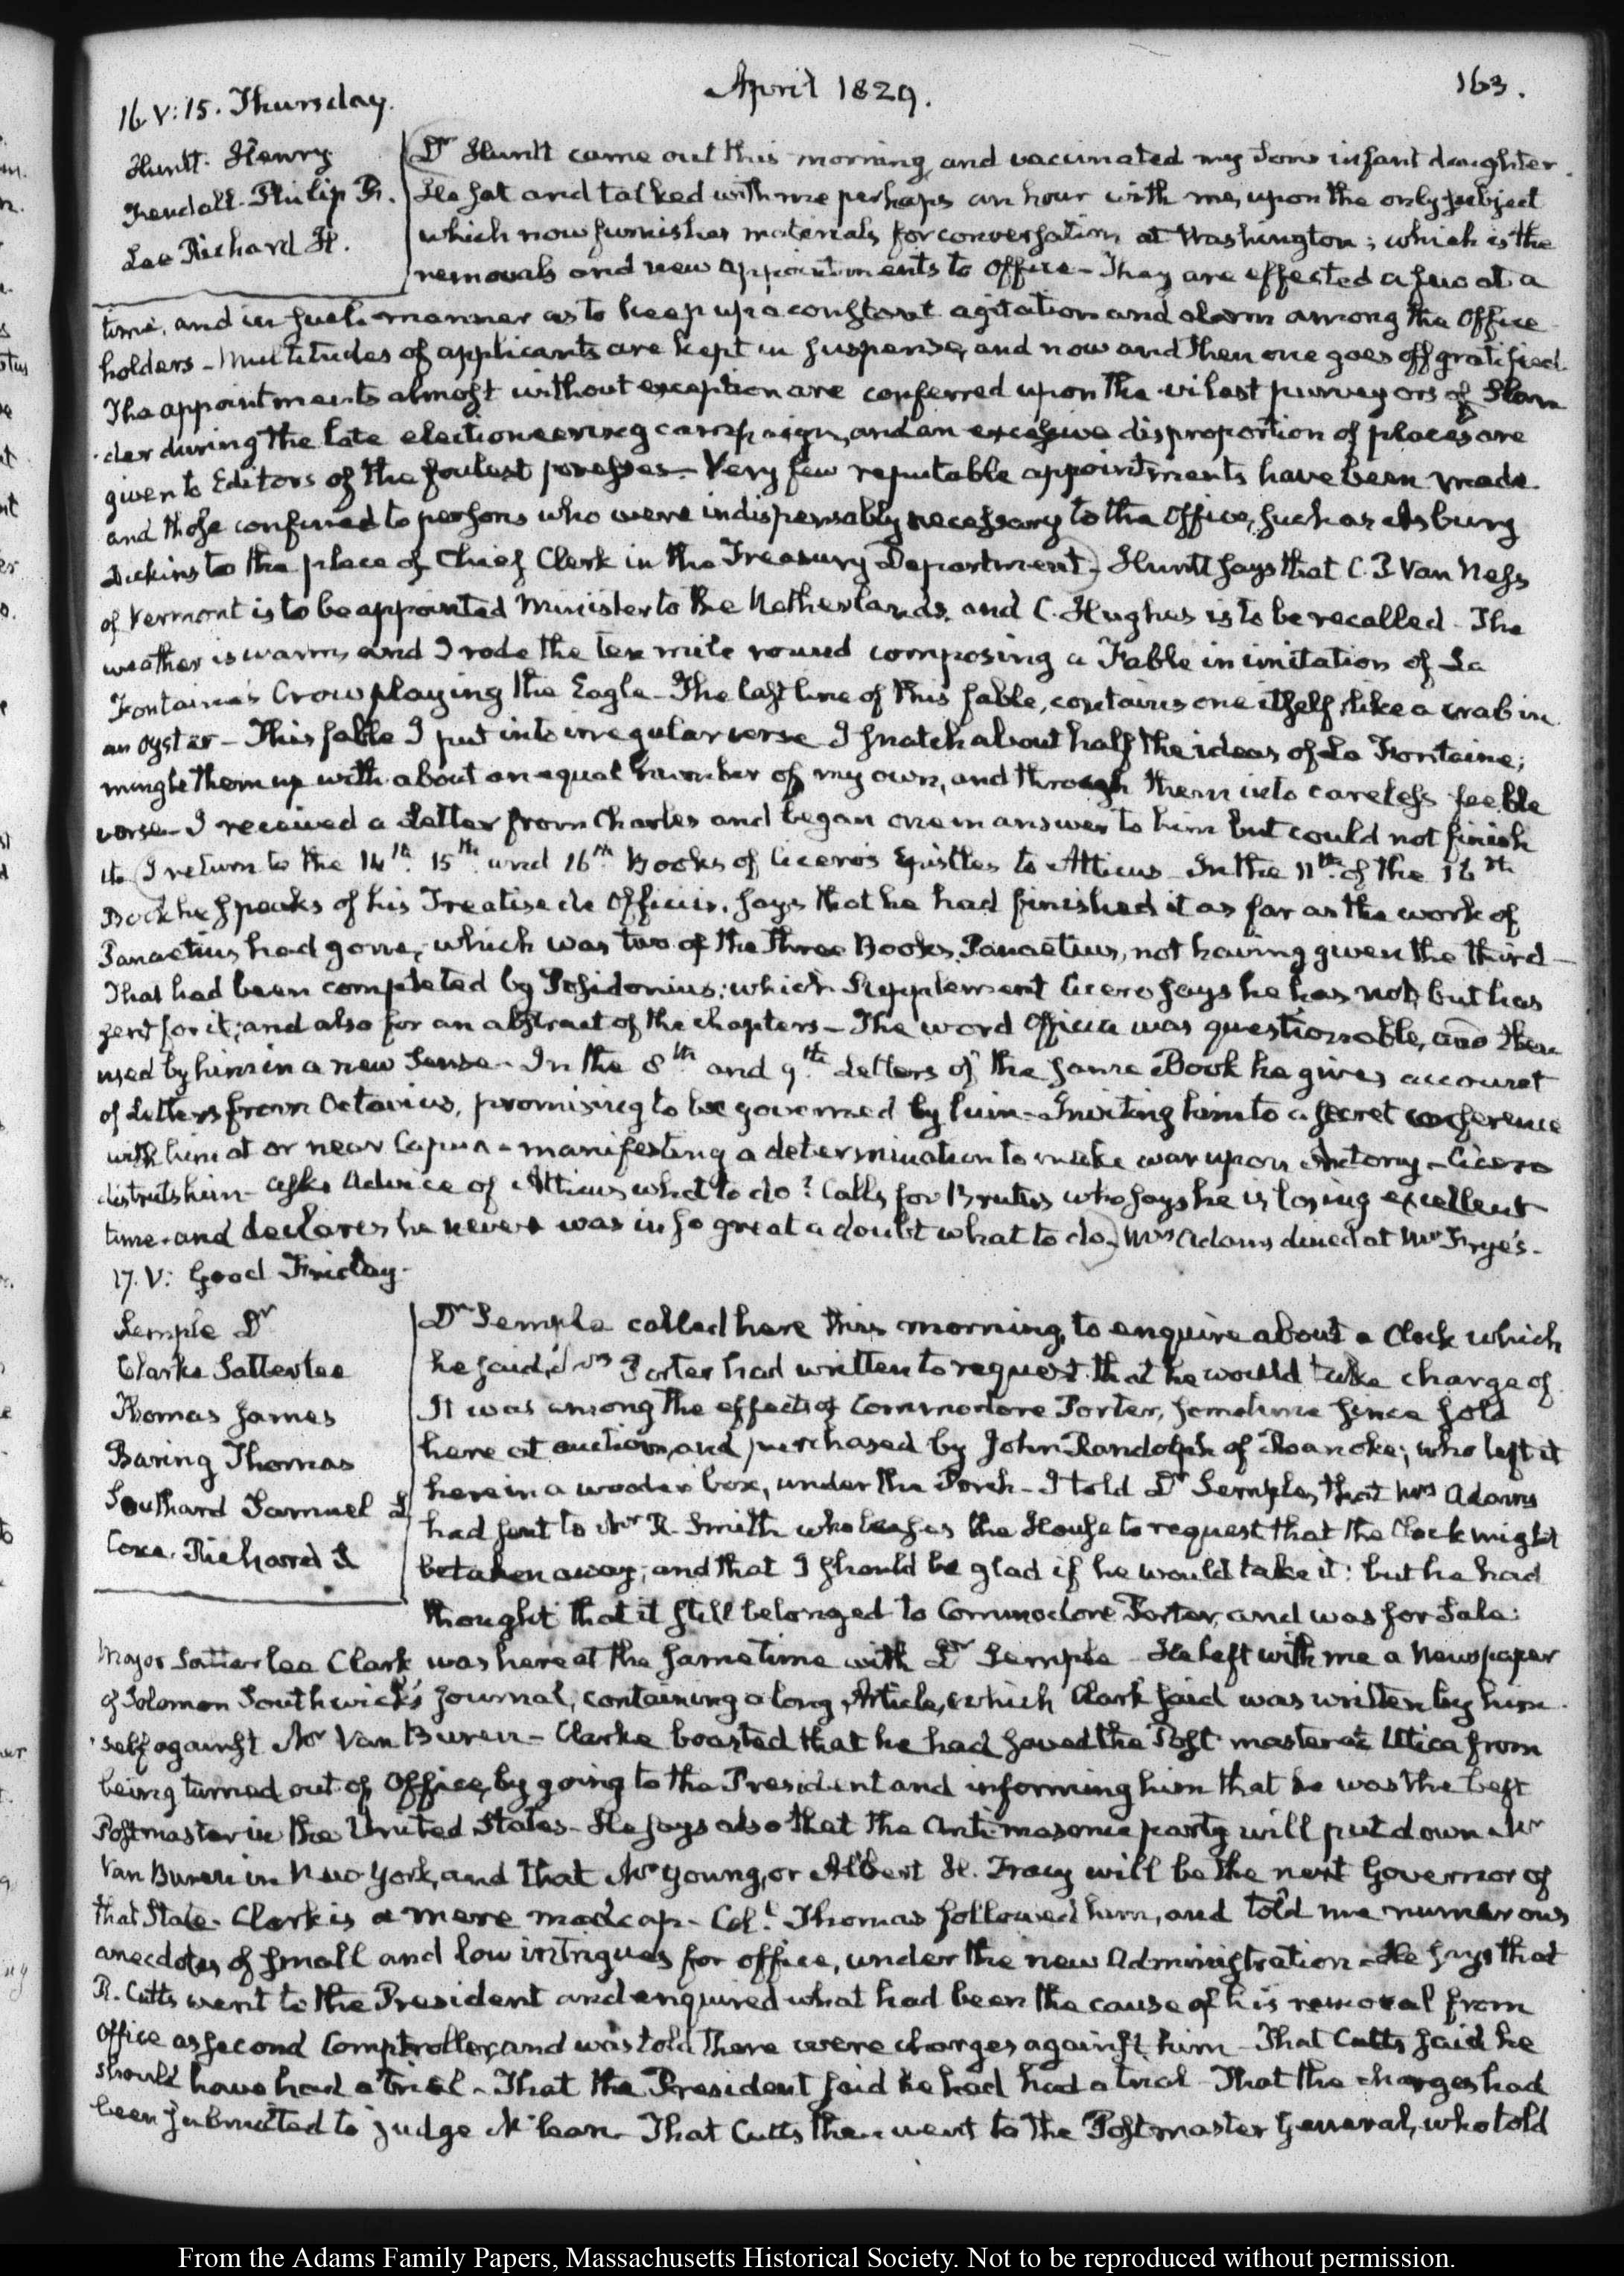 April 1829.
163.
16. V:15. Thursday.
Huntt. Henry
Fendall. Philip R.
Lee Richard H.
Dr Huntt came out this morning, and vaccinated my Sons infant daughter.
He sat and talked with me perhaps an hour with me, upon the only subject
which now furnishes materials for conversation at Washington; which is the
removals and new appointments to Office – They are effected a few at a
time, and in such manner as to keep up a constant agitation and alarm among the Office
holders – Multitudes of applicants are kept in suspense, and now and then one goes off gratified.
The appointments almost without exception are conferred upon the vilest purveyors of Slan
der during the late electioneering campaign, and an excessive disproportion of places are
given to Editors of the foulest presses – Very few reputable appointments have been made.
and those confined to persons who were indispensably necessary to the Office, such as Asbury
Dickins to the place of Chief Clerk in the Treasury Department – Huntt says that C. P. Van Ness
of Vermont is to be appointed Minister to the Netherlands, and C. Hughes is to be recalled – The
weather is warm, and I rode the ten mile round composing a Fable in imitation of La
Fontaine's Crow playing the Eagle – The last line of this fable, contains one itself, like a crab in
an oyster – This fable I put into irregular verse I snatch about half the ideas of La Fontaine;
mingle them up with about an equal number of my own, and through them into careless feeble
verse – I received a Letter from Charles and began one in answer to him but could not finish
it. I return to the 14th. 15th. and 16th. Books of Cicero's Epistles to Atticus – In the 11th. of the 16th
Book he speaks of his Treatise de Officiis, says that he had finished it as far as the work of
Panaetius had gone, which was two of the three Books. Panaetius, not having given the third –
That had been completed by Posidonius: which Supplement Cicero says he has not, but has
sent for it; and also for an abstract of the chapters – The word Officia was questionable, and then
used by him in a new Sense – In the 8th. and 9th. Letters of the same Book he gives account
of Letters from Octavius, promising to be governed by him – Inviting him to a secret conference
with him at or near Capua – manifesting a determination to make war upon Antony – Cicero
distrusts him – asks Advice of Atticus what to do? Calls for Brutus who says he is losing excellent
time – and declares he never was in so great a doubt what to do – Mrs Adams dined at Mr Frye's –
17. V: Good Friday.
Semple Dr
Clarke Satterlee
Thomas James
Baring Thomas
Southard Samuel L
Coxe. Richard S
Dr Semple called here this morning, to enquire about a Clock which
he said, Mrs Porter had written to request that he would take charge of.
It was among the effects of Commodore Porter, sometime since sold
here at auction, and purchased by John Randolph of Roanoke; who left it
here in a wooden box, under the Porch – I told Dr Semple, that Mrs Adams
had sent to Mr R. Smith who leases the House to request that the Clock might
be taken away; and that I should be glad if he would take it: but he had
thought that it still belonged to Commodore Porter, and was for Sale:
Major Satterlee Clark was here at the same time with Dr Semple – He left with me a Newspaper
of Solomon Southwick's journal, containing a long Article, which Clark said was written by him
self against Mr Van Buren – Clarke boasted that he had saved the Post master at Utica from
being turned out of Office, by going to the President and informing him that he was the best
Postmaster in the United States – He says also that the Antimasonic party will put down Mr
Van Buren in New York, and that Mr Young, or Albert H. Tracy will be the next Governor of
that State. Clark is a mere madcap – Coll. Thomas followed him, and told me numerous
anecdotes of small and low intrigues for office, under the new Administration – He says that
R. Cutts went to the President and enquired what had been the cause of his removal from
Office as second Comptroller, and was told there were charges against him – That Cutts said he
should have had a trial – That the President said he had had a trial – That the charges had
been submitted to Judge McLean – That Cutts then went to the Postmaster General, who told
From the Adams Family Papers, Massachusetts Historical Society. Not to be reproduced without permission.